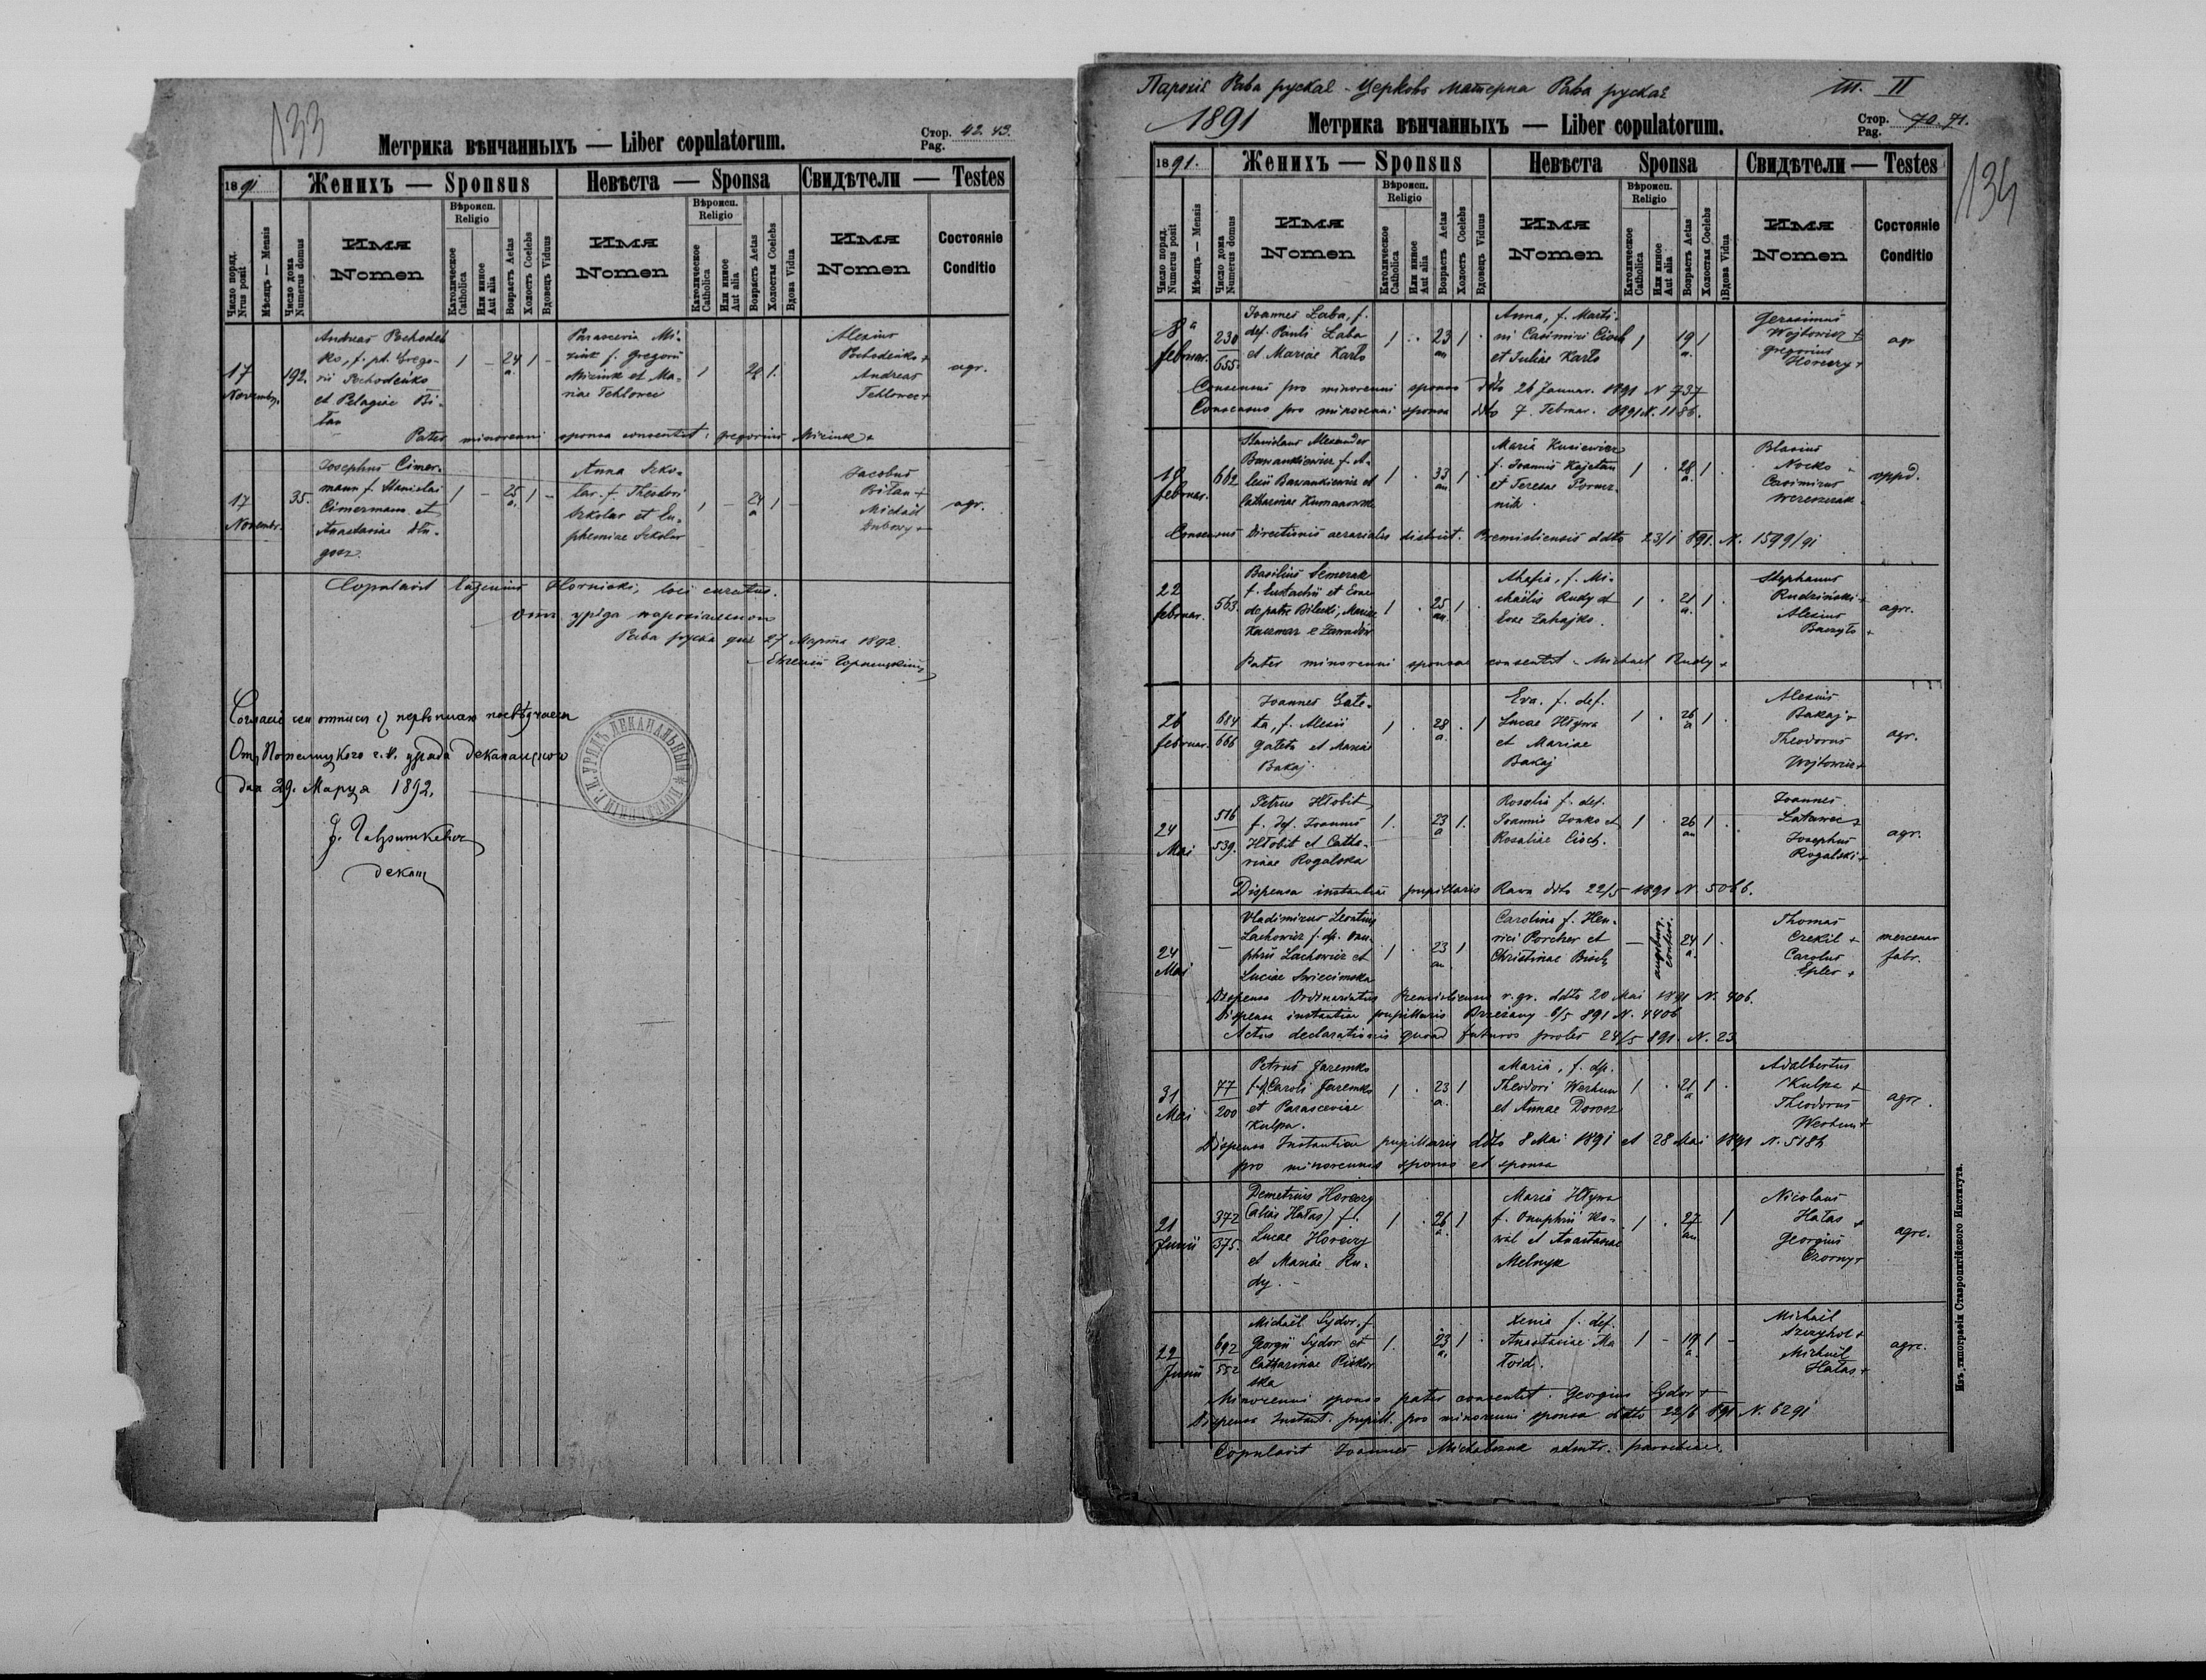 133
Метрика вѣнчанныхъ — Liber copulatorum.
Стор. Pag. 42. 43.
1891
Женихъ — Sponsus
Невѣста — Sponsa
Свидѣтели — Testes
Число поряд. Nrus posit
Мѣсяцъ — Mensis
Число дома Numerus domus
Имя Nomen
Вѣроисп. Religio
Католическое Catholica
Или инное Aut alia
Возрастъ Aetas
Холостъ Coelebs
Вдовецъ Viduus
Имя Nomen
Вѣроисп. Religio
Католическое Catholica
Или инное Aut alia
Возрастъ Aetas
Холостая Coelebs
Вдова Vidua
Имя Nomen
Состояніе Conditio
17 Novembr.
192.
Andreas Pochodeń
ko, f. pd. Grego-
rii Pochodeńko
et Pelagiae Bi-
tan
1 - 24 a. 1 -
Parascevia Mi-
zink f. Gregorii
Mizink et Ma-
riae Tehlowec
1 1.
Alexius
Pochodeńko +
Andreas
Tehlowec +
agr.
Pater minorenni sponsa consentit: Gregorius Mizink +
17 Novembr.
35.
Josephus Cimer-
mann f. Stanislai
Cimermann et
Anastasiae Dłu-
gosz.
1 - 25 a. 1 -
Anna Szko-
lar f. Theodori
Szkolar et Eu-
phemiae Szkolar
1 - 24 a 1 -
Jacobus
Bitan +
Michael
Dubowy +
agr.
Copulavit Eugenius Hornicki, loci curatus.
Отъ уряда парохіяльного
Рава руска дня 27 Марта 1892.
Евгеній Горницкій
дня 29. Марца 1892.
декан
Парохія Рава руская - Церковь матерна Рава руская
III. II
1891
Метрика вѣнчанныхъ — Liber copulatorum.
Стор. Pag. 70. 71.
134
1891.
Женихъ — Sponsus
Невѣста Sponsa
Свидѣтели — Testes
Число поряд. Numerus posit
Мѣсяцъ — Mensis
Число дома Numerus domus
Имя Nomen
Вѣроисп. Religio
Католическое Catholica
Или инное Aut alia
Возрастъ Aetas
Холостъ Coelebs
Вдовецъ Viduus
Имя Nomen
Вѣроисп. Religio
Католическое Catholica
Или инное Aut alia
Возрастъ Aetas
Холостая Coelebs
Вдова Vidua
Имя Nomen
Состояніе Conditio
8 februar.
230 655.
Joannes Łaba, f.
def. Pauli Łaba
et Mariae Karło
1 . 23 an 1 .
Anna, f. Marti-
ni Casimiri Cioch
et Juliae Karło
1 19 a. 1
Gerasimus
Wojtowicz +
Gregorius
Horeczy +
agr
Consensus pro minorenni sponso ddto 26 Januar. 1891 N 737
Consensus pro minorenni sponsa ddto 7. Februar. 1891 N. 1186.
10 februar.
662.
Stanislaus Alexander
Barwankiewicz f. A-
lexii Barwankiewicz et
Catharinae Kumanowska
1 . 33 an 1 .
Maria Kusiewicz
f. Joannis Kajetan
et Teresae Pomez-
nik.
1 . 28 a. 1 .
Blasius
Nocko
Casimirus
Wereszczak
oppid.
Consensus Directionis aerarialis district. Premisliensis ddto 23/1 891. N. 1599/91
22 februar.
563.
Basilius Semerak
f. Eustachii et Evae
de patre Bilecki, Mariae
Kaczmar e Zawadów
1 . 25 an. 1 .
Ahafia, f. Mi-
chaëlis Rudy et
Evae Zahajko.
1 . 21 a. 1 .
Stephanus
Rudziński +
Alexius
Baczyło +
agr.
Pater minorenni sponsae consentit - Michael Rudy +
26 februar.
684 666
Joannes Gałe-
ta, f. Alexii
Gałeta et Mariae
Bakaj.
1 . 28 a. . 1
Eva. f. def.
Lucae Hływa
et Mariae
Bakaj
1 . 26 a 1 .
Alexius
Bakaj +
Theodorus
Wojtowicz +
agr.
24 Mai
516 539.
Petrus Hłobit
f. def. Joannis
Hłobit et Catha-
rinae Rogalska
1. 23 a 1.
Rosalia f. def.
Joannis Jonko et
Rosaliae Cioch.
1 . 26 an 1 .
Joannes
Latawiec +
Josephus
Rogalski +
agr.
Dispensa instantiae pupillaris Rava ddto 22/5 1891 N 5066.
24 Mai
—
Vladimirus Leontius
Lachowicz f. dp. Onu-
phrii Lachowicz et
Luciae Swiecimska
1 . 23 an. 1
Carolina f. Hen-
rici Porcher et
Christinae Bisch
— augsburg. confess. 24 a. 1 .
Thomas
Czekil +
Carolus
Epler +
mercenar fabr.
Dispensa Ordinariatus Premisliensis r. gr. ddto 20 Mai 1891 N. 406.
Dispensa instantiae pupillaris Brzeżany 6/5 891 N. 4406
Actus declarationis quoad futuros proles 24/5 891. N. 23
31 Mai
77 200
Petrus Jaremko
f. dp. Caroli Jaremko
et Parasceviae
Kulpa.
1 . 23 a. 1
Maria, f. dp.
Theodori Werhun
et Annae Dorosz
1 . 21 a 1 .
Adalbertus
Kulpa +
Theodorus
Werhun +
agr.
Dispensa Instantiae pupillaris ddto 8 Mai 1891 et 28 Mai 1891 N. 5184
pro minorennis sponso et sponsa
21 Junii
372 375.
Demetrius Horeczy
(alias Hałas) f.
Lucae Horeczy
et Mariae Ru-
dy. -
1 . 26 a. 1
Maria Hływa
f. Onuphrii Ko-
wal et Anastasiae
Melnyk
1 . 27 an 1
Nicolaus
Hałas +
Georgius
Czorny +
agr.
22 Junii
692 552
Michaël Sydor, f.
Georgii Sydor et
Catharinae Piskor
ska
1. 23 a. 1 .
Xenia f. def.
Anastasiae Ma
1 - 19 a. 1 -
Michaël
Michaël
Hałas +
agr.
Minorenni sponso pater consentit. Georgius Sydor +
Dispensa Instant. pupill. pro minorenni sponsa ddto 22/6 891 N. 6291
Copulavit Joannes Michalczuk admtr. parochiae.
Изъ типографіи Ставропигійского Института.